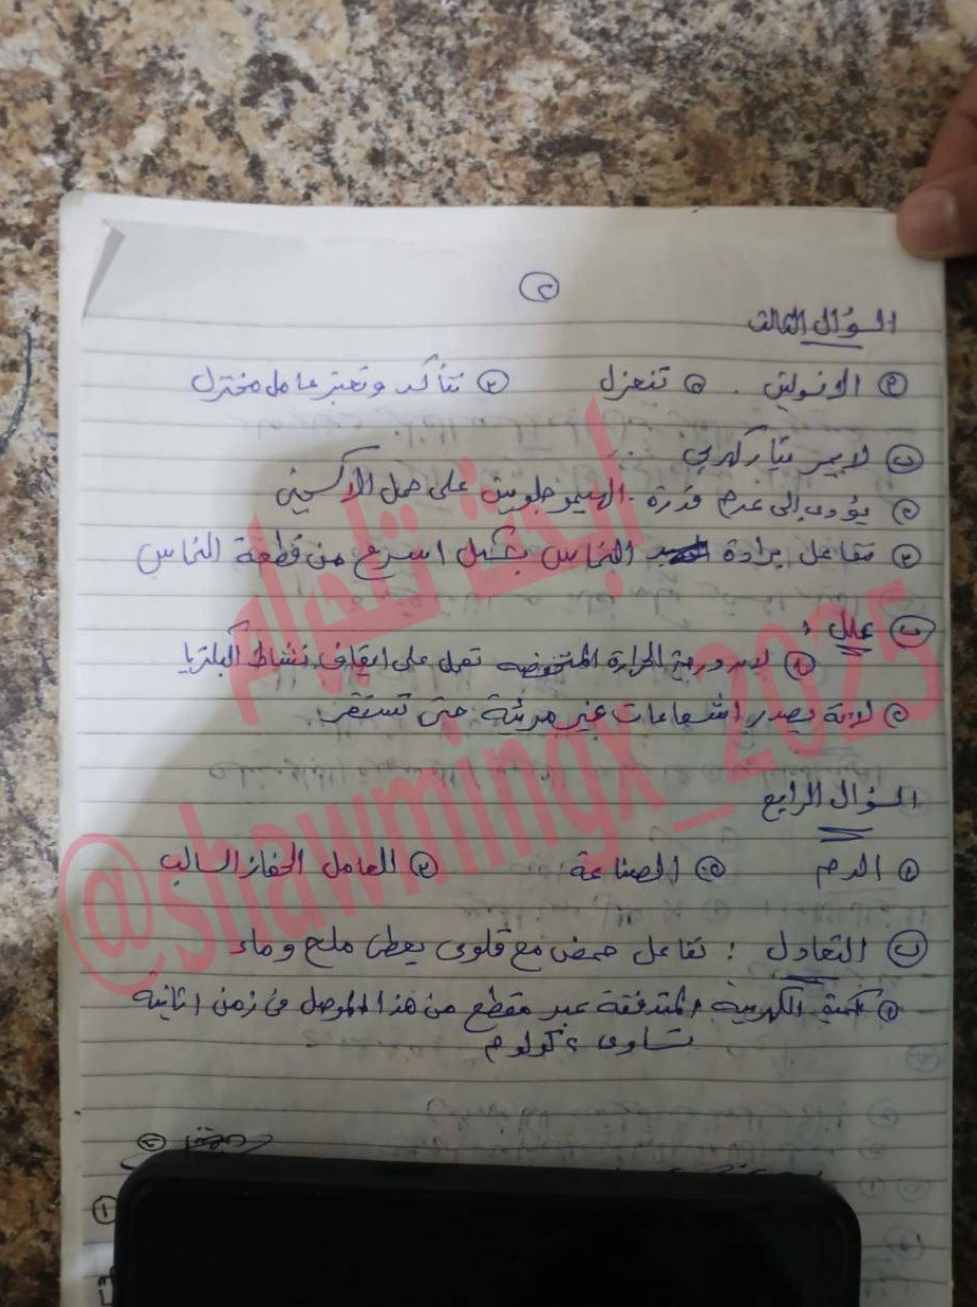 ٢
السؤال الثالث
١ الانسولين . ٢ تنعزل ٣ تتأكسد وتعتبر عامل مختزل
ب لا يمر تيار كهربي
٢ يؤدى إلى عدم قدرة الهيموجلوبين على حمل الأكسجين
٣ تتفاعل برادة النحاس بشكل اسرع من قطعة النحاس
ب علل :
١ لان درجة الحرارة المنخفضه تعمل على ايقاف نشاط البكتريا
٢ لانه يصدر اشعاعات غير مرئية حتى تستقر
السؤال الرابع
١ الدم ٢ الصناعة ٣ العامل الحفاز السالب
ب التعادل : تفاعل حمض مع قلوى يعطى ملح وماء
٢ كمية الكهربية المتدفقة عبر مقطع من هذا الموصل فى زمن ١ ثانية
تساوى ٤ كولوم
ابحث تليجرام
@shawmingx_2025